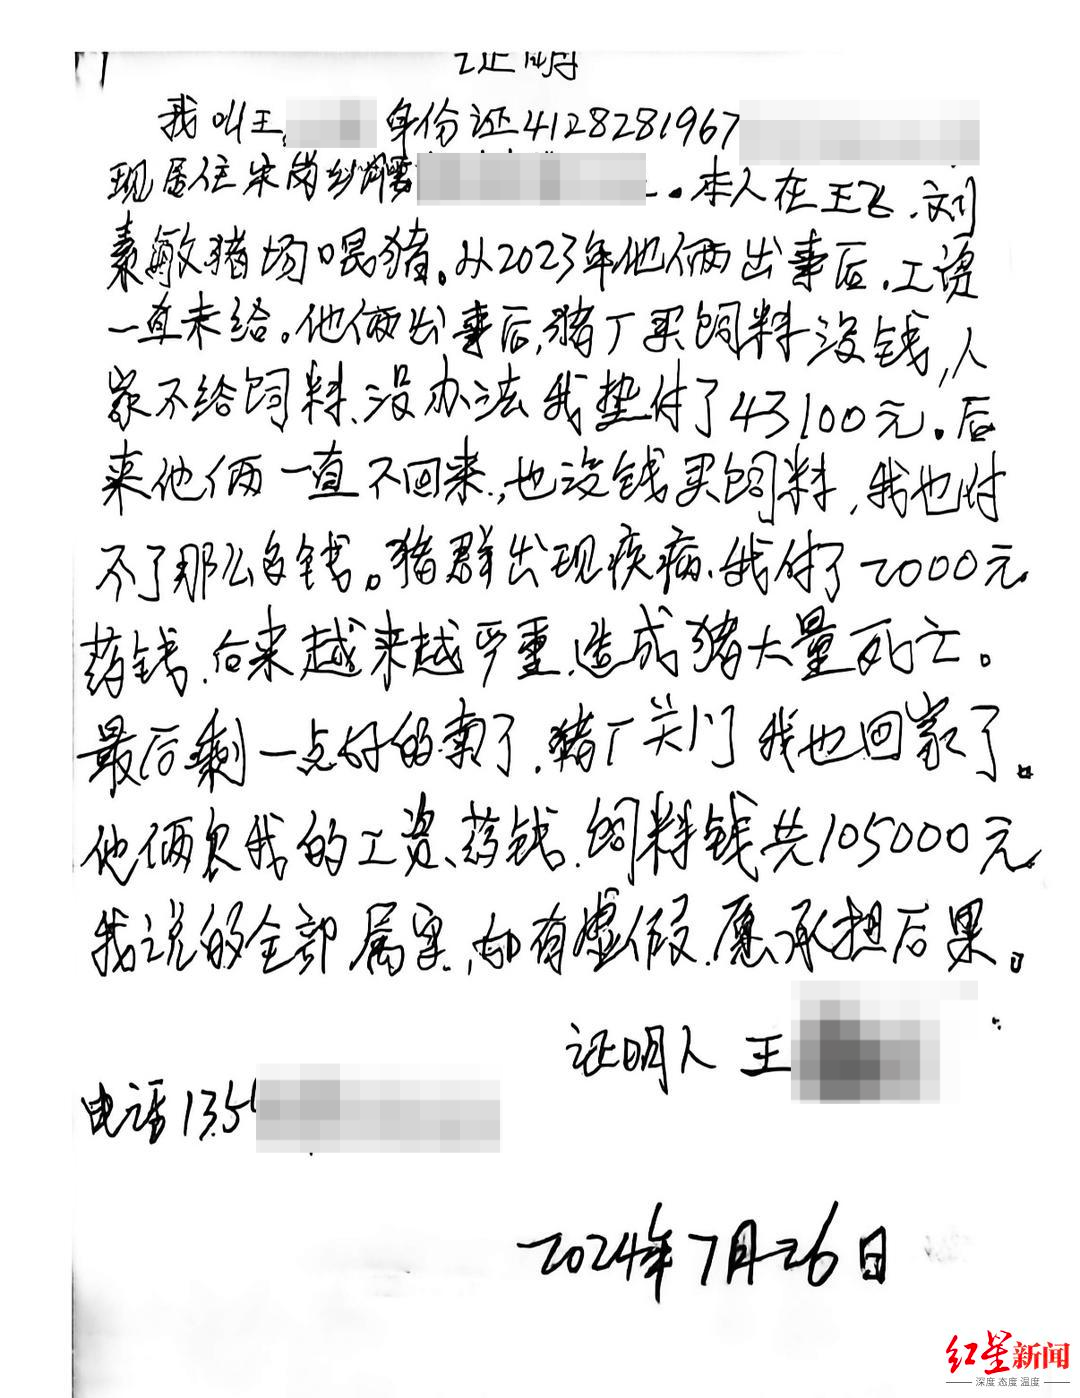 证明
我叫王 年份证4128281967
现居住宋岗 。本人在王飞、刘
素敏猪场喂猪。从2023年他俩出事后，工资
一直未给。他俩出事后，猪厂买饲料没钱，人
家不给饲料、没办法我垫付了43100元。后
来他俩一直不回来，也没钱买饲料，我也付
不了那么多钱。猪群出现疾病、我付了2000元
药钱，后来越来越严重，造成猪大量死亡。
最后剩一点好的卖了，猪厂关门我也回家了。
他俩欠我的工资、药钱、饲料钱共105000元
我说的全部属实，如有虚假，愿承担后果。
证明人 王
电话135
2024年7月26日
红星新闻
深度 态度 温度